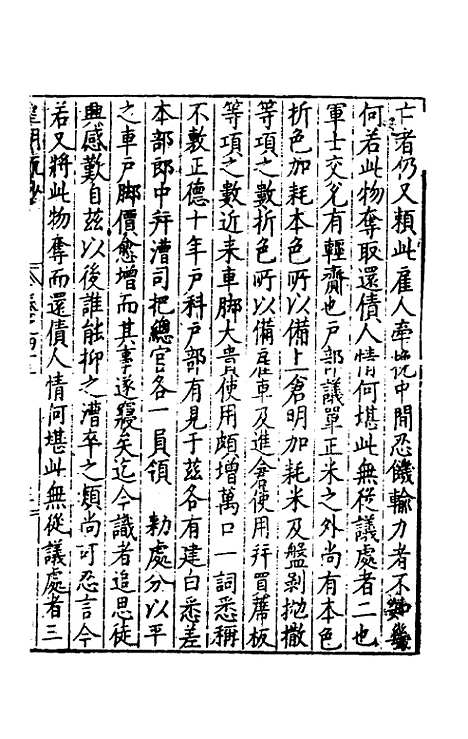 亡者仍又賴此雇人牽挽中間忍饑輸力者不知幾
何若此物奪取還債人情何堪此無從議處者二也
軍士交兊有輕齎也户部議單正米之外尚有本色
折色加耗本色所以備上倉明加耗米及盤剝抛撒
等項之數折色所以備雇車及進倉使用并買蓆板
等項之數近来車脚大貴使用頗增萬口一詞悉稱
不敷正德十年户科户部有見于兹各有建白悉差
本部郎中并漕司把總官各一員領 勑處分以平
之車户脚價愈增而其事遂寢矣迄今識者追思徒
興感歎自兹以後誰能抑之漕卒之類尚可忍言今
若又將此物奪而還債人情何堪此無從議處者三
皇明疏鈔